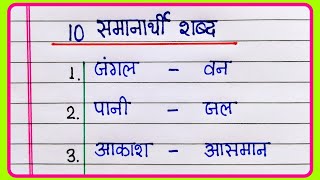 10 समानार्थी शब्द
1. जंगल – वन
2. पानी – जल
3. आकाश – आसमान